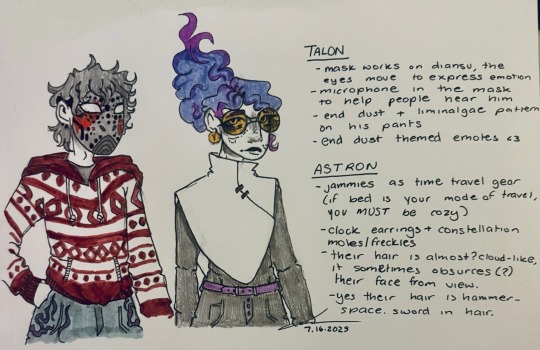 TALON
- mask works on diansu, the
eyes move to express emotion
- microphone in the mask
to help people hear him
- end dust + liminalgae pattern
on his pants
- end dust themed emotes <3
ASTRON
- jammies as time travel gear
(if bed is your mode of travel,
you MUST be cozy)
- clock earrings + constellation
moles/freckles
- their hair is almost? cloud-like,
it sometimes obsurces (?)
their face from view.
- yes their hair is hammer-
space. sword in hair.
7.16.2023